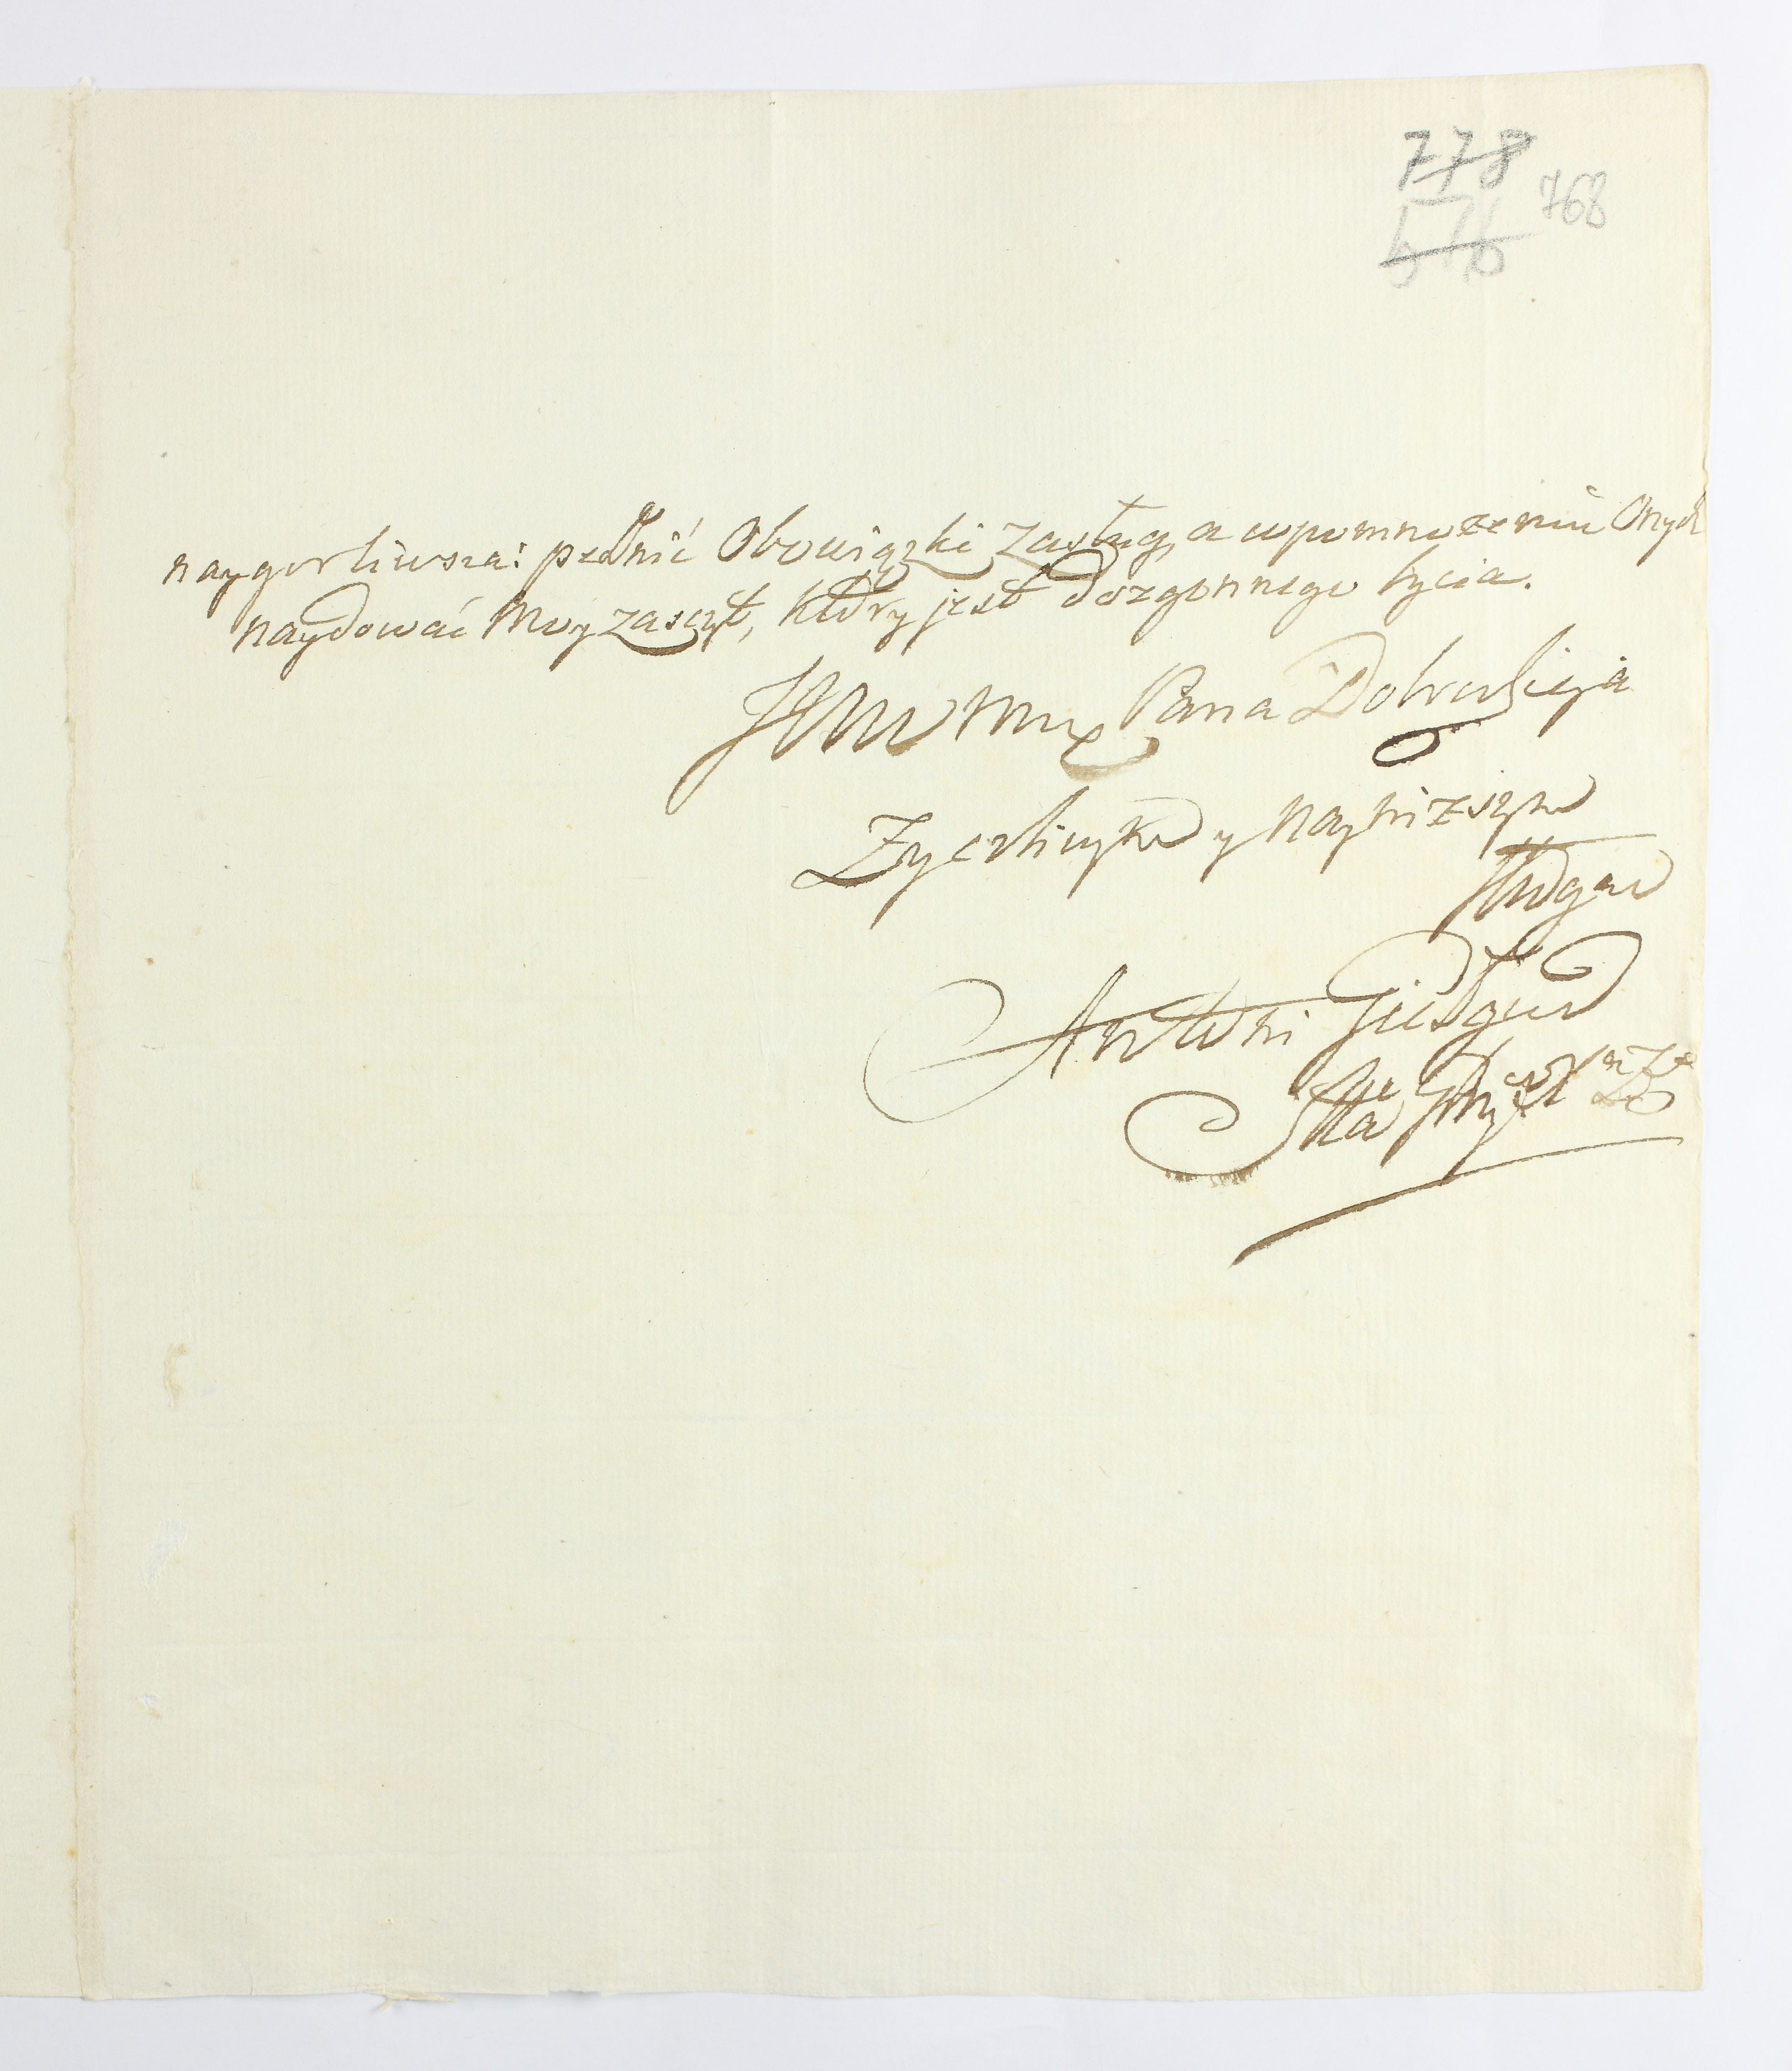 778
576 768
naygorliwsza: pełnić Obowiązki Zasług, a wpomnożeniu Onych
naydować Moy zasczyt, który jest dozgonnego życia.
JWW Mu Pana Dobrodzieja
Zyczliwym y nayniższym
sługą
Antoni Giełgud
Sta